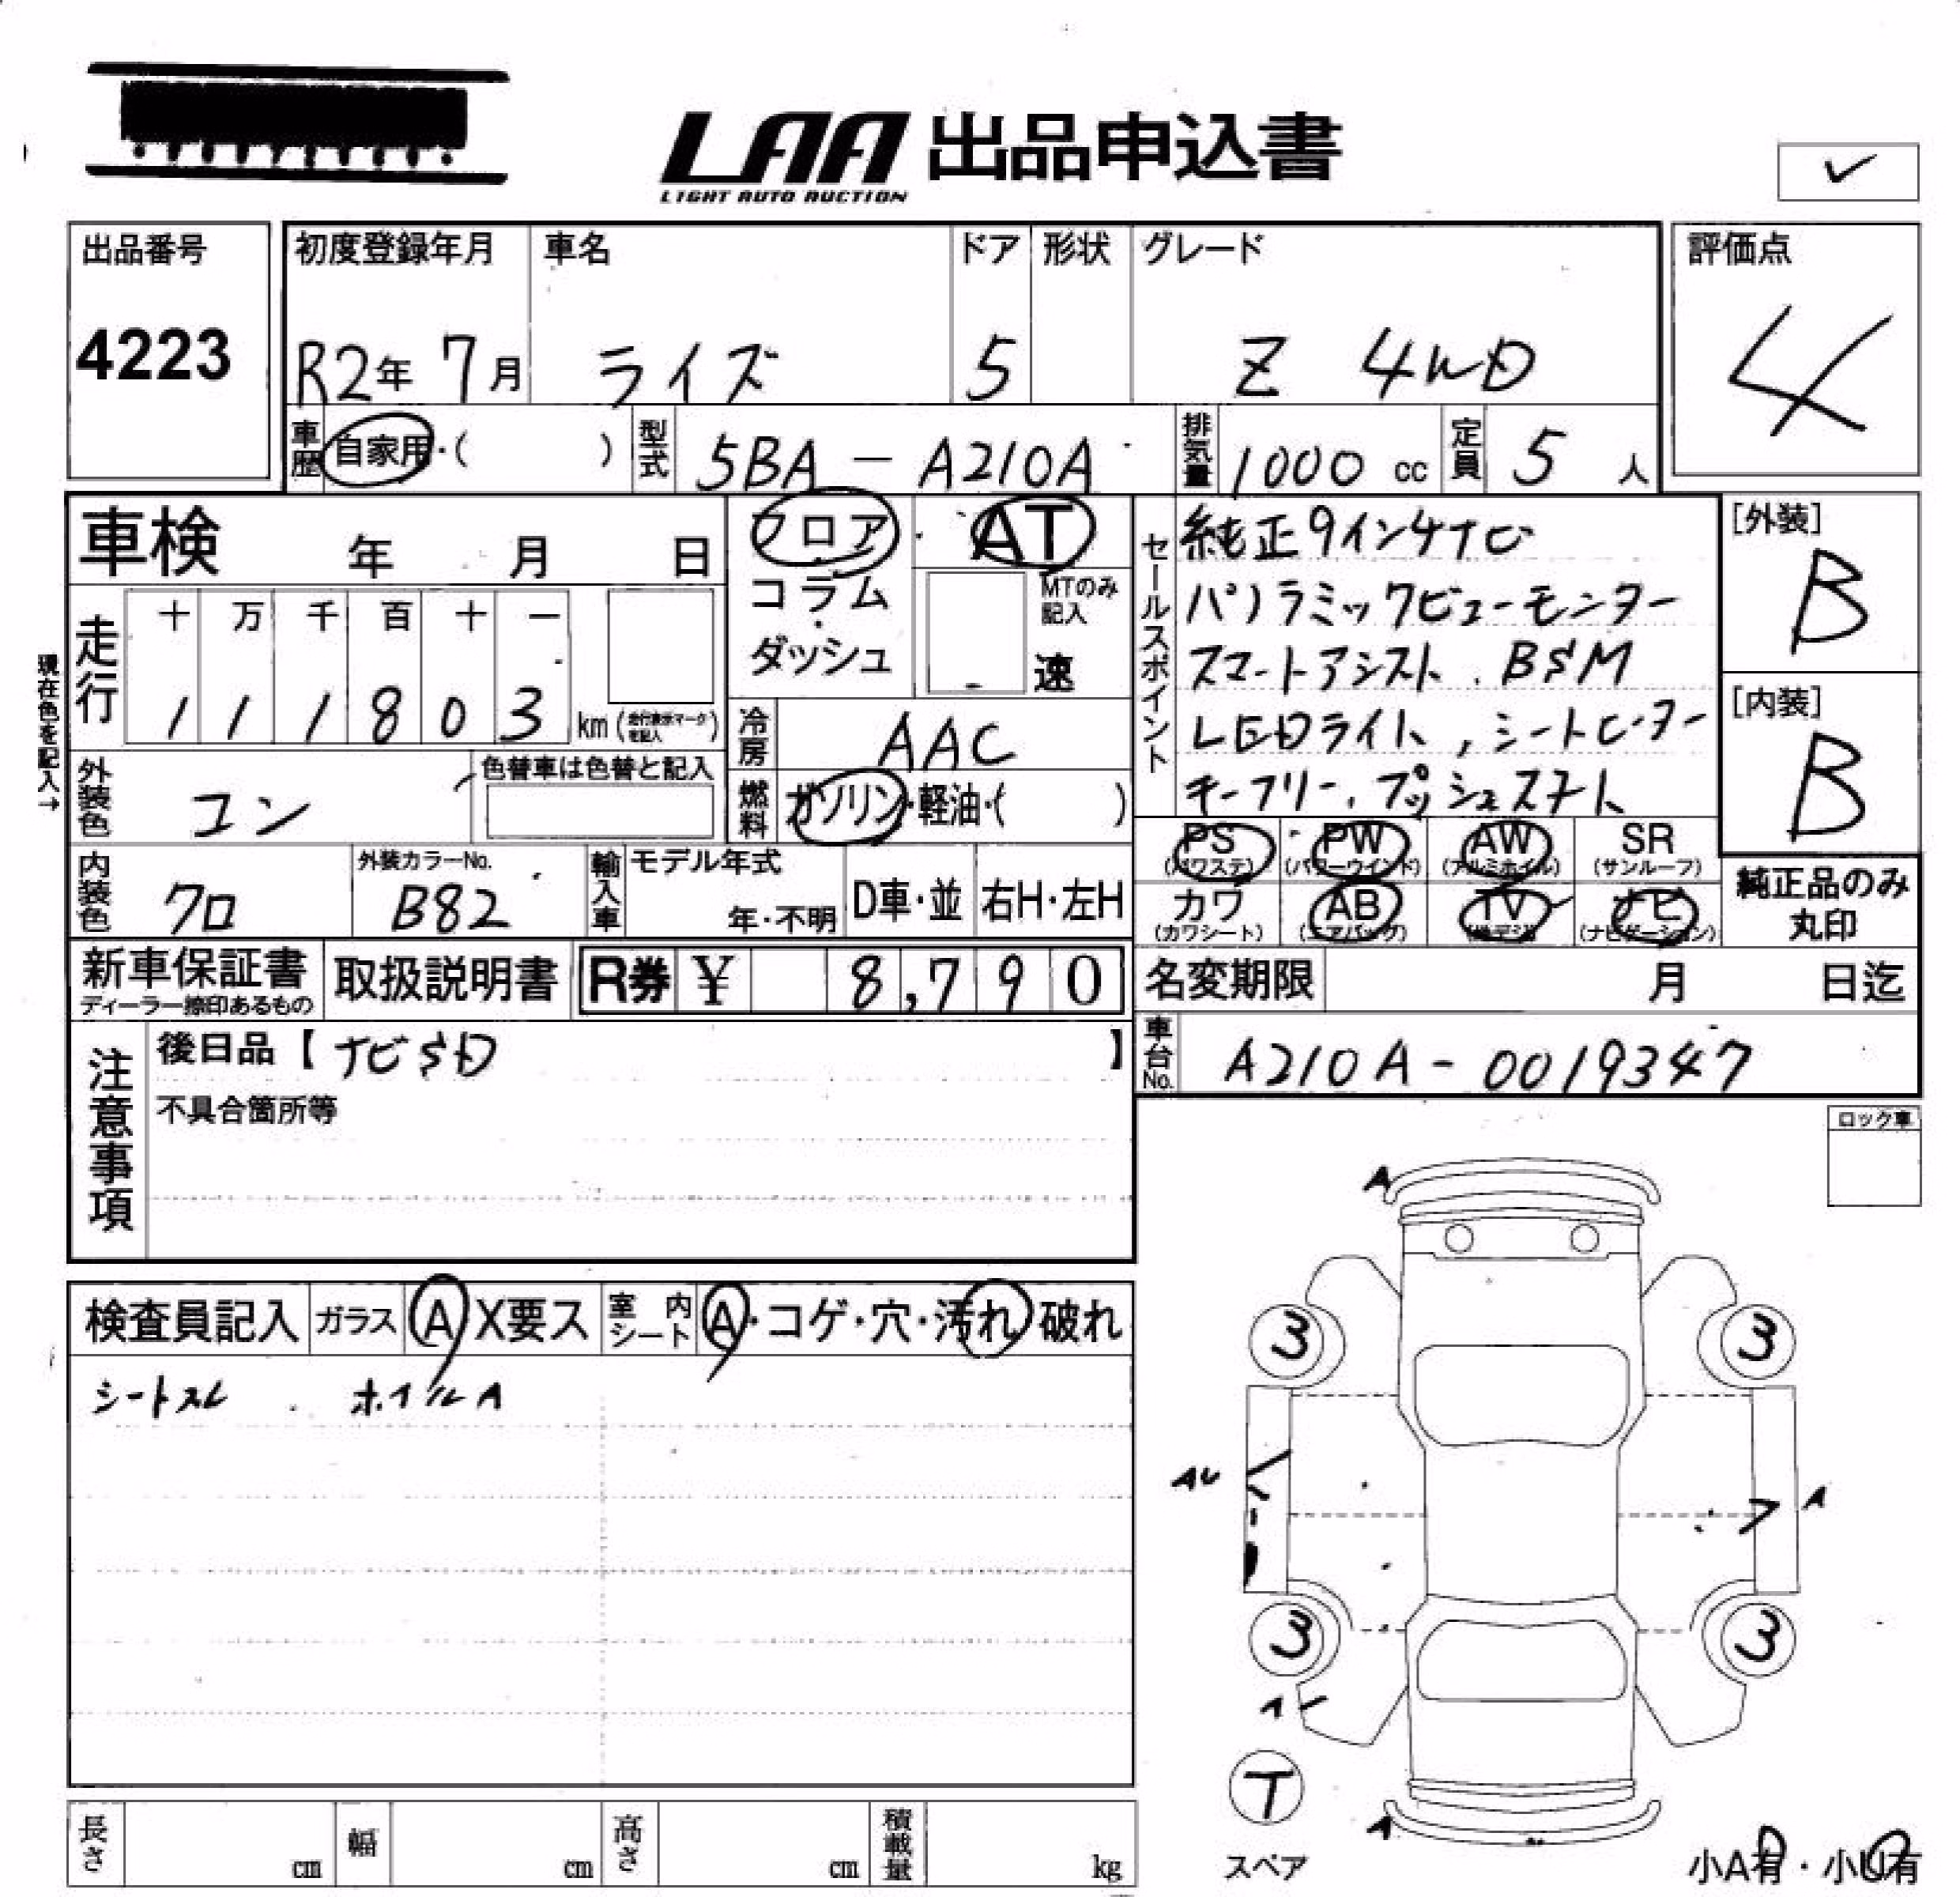 LAA 出品申込書
LIGHT AUTO AUCTION
出品番号
4223
初度登録年月
R2年 7月
車名
ライズ
ドア
5
形状
グレード
Z 4WD
評価点
4
車歴 自家用・( )
型式 5BA - A210A
排気量 1000 cc
定員 5 人
車検 年 月 日
フロア・コラム・ダッシュ
AT
MTのみ記入
速
セールスポイント
純正9インチナビ
パノラミックビューモニター
スマートアシスト、BSM
LEDライト、シートヒーター
キーフリー、プッシュスタート
[外装]
B
[内装]
B
現在色を記入→
走行
十 万 千 百 十 一
1 1 1 8 0 3 km (走行表示マークを記入)
冷房 AAC
外装色 コン
色替車は色替と記入
燃料 ガソリン・軽油・( )
PS (パワステ)
PW (パワーウインド)
AW (アルミホイル)
SR (サンルーフ)
カワ (カワシート)
AB (エアバッグ)
TV (地デジ)
ナビ (ナビゲーション)
純正品のみ丸印
内装色 クロ
外装カラーNo. B82
輸入車
モデル年式
年・不明
D車・並
右H・左H
新車保証書
ディーラー捺印あるもの
取扱説明書
R券 ¥ 8,790
名変期限 月 日迄
車台No. A210A - 0019347
注意事項
後日品【ナビSD】
不具合箇所等
ロック車
検査員記入
ガラス A X要ス
室内シート A・コゲ・穴・汚れ 破れ
シートスレ . ホイルA
A
3
3
AU
A
3
3
A
T
スペア
A
小A有・小U有
長さ cm
幅 cm
高さ cm
積載量 kg